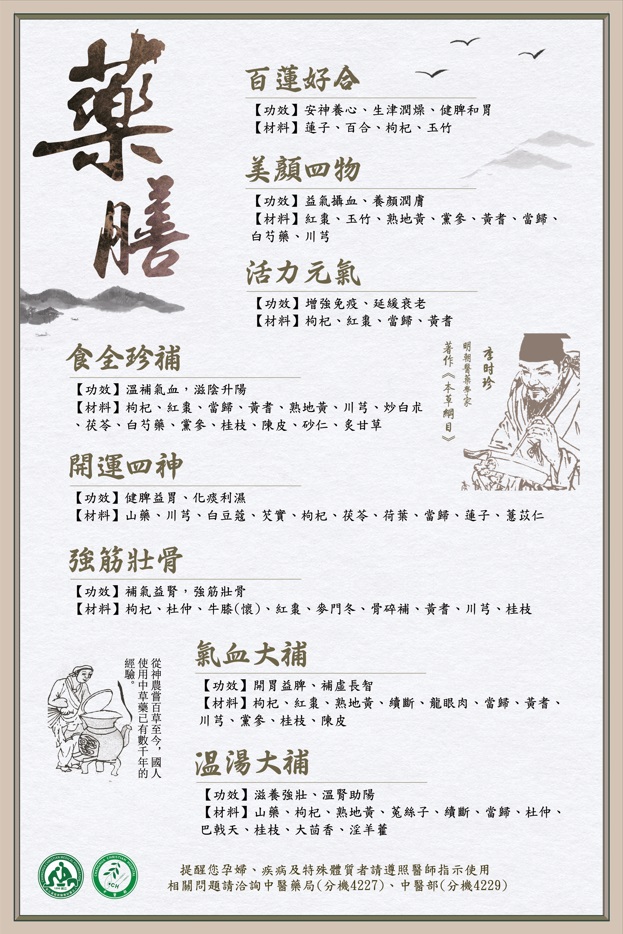 藥膳
百蓮好合
【功效】安神養心、生津潤燥、健脾和胃
【材料】蓮子、百合、枸杞、玉竹
美顏四物
【功效】益氣攝血、養顏潤膚
【材料】紅棗、玉竹、熟地黃、黨參、黃耆、當歸、
白芍藥、川芎
活力元氣
【功效】增強免疫、延緩衰老
【材料】枸杞、紅棗、當歸、黃耆
李时珍
明朝醫藥學家
著作《本草綱目》
食全珍補
【功效】溫補氣血，滋陰升陽
【材料】枸杞、紅棗、當歸、黃耆、熟地黃、川芎、炒白朮
、茯苓、白芍藥、黨參、桂枝、陳皮、砂仁、炙甘草
開運四神
【功效】健脾益胃、化痰利濕
【材料】山藥、川芎、白豆蔻、芡實、枸杞、茯苓、荷葉、當歸、蓮子、薏苡仁
強筋壯骨
【功效】補氣益腎，強筋壯骨
【材料】枸杞、杜仲、牛膝(懷)、紅棗、麥門冬、骨碎補、黃耆、川芎、桂枝
從神農嘗百草至今，國人
使用中草藥已有數千年的
經驗。
氣血大補
【功效】開胃益脾、補虛長智
【材料】枸杞、紅棗、熟地黃、續斷、龍眼肉、當歸、黃耆、
川芎、黨參、桂枝、陳皮
溫湯大補
【功效】滋養強壯、溫腎助陽
【材料】山藥、枸杞、熟地黃、菟絲子、續斷、當歸、杜仲、
巴戟天、桂枝、大茴香、淫羊藿
提醒您孕婦、疾病及特殊體質者請遵照醫師指示使用
相關問題請洽詢中醫藥局(分機4227)、中醫部(分機4229)